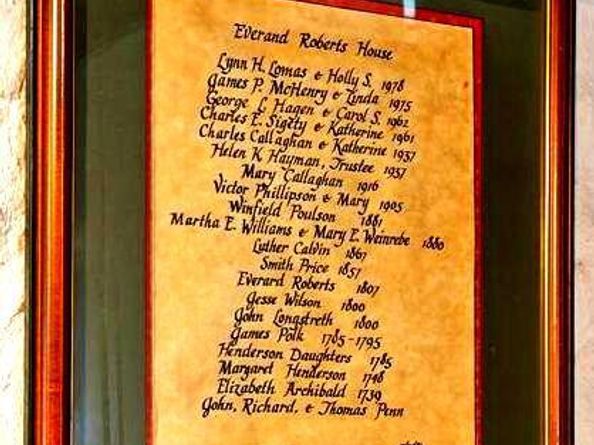 Everand Roberts House
Lynn H. Lomas & Holly S. 1978
James P. McHenry & Linda 1975
George L Hagen & Carol S. 1962
Charles E. Sigety & Katherine 1961
Charles Callaghan & Katherine 1937
Helen K Hayman, Trustee 1937
Mary Callaghan 1916
Victor Phillipson & Mary 1905
Winfield Poulson 1881
Martha E. Williams & Mary E. Weinrebe 1880
Luther Calvin 1867
Smith Price 1857
Everard Roberts 1807
Jesse Wilson 1800
John Longstreth 1800
James Polk 1785-1795
Henderson Daughters 1785
Margaret Henderson 1748
Elizabeth Archibald 1739
John, Richard, & Thomas Penn